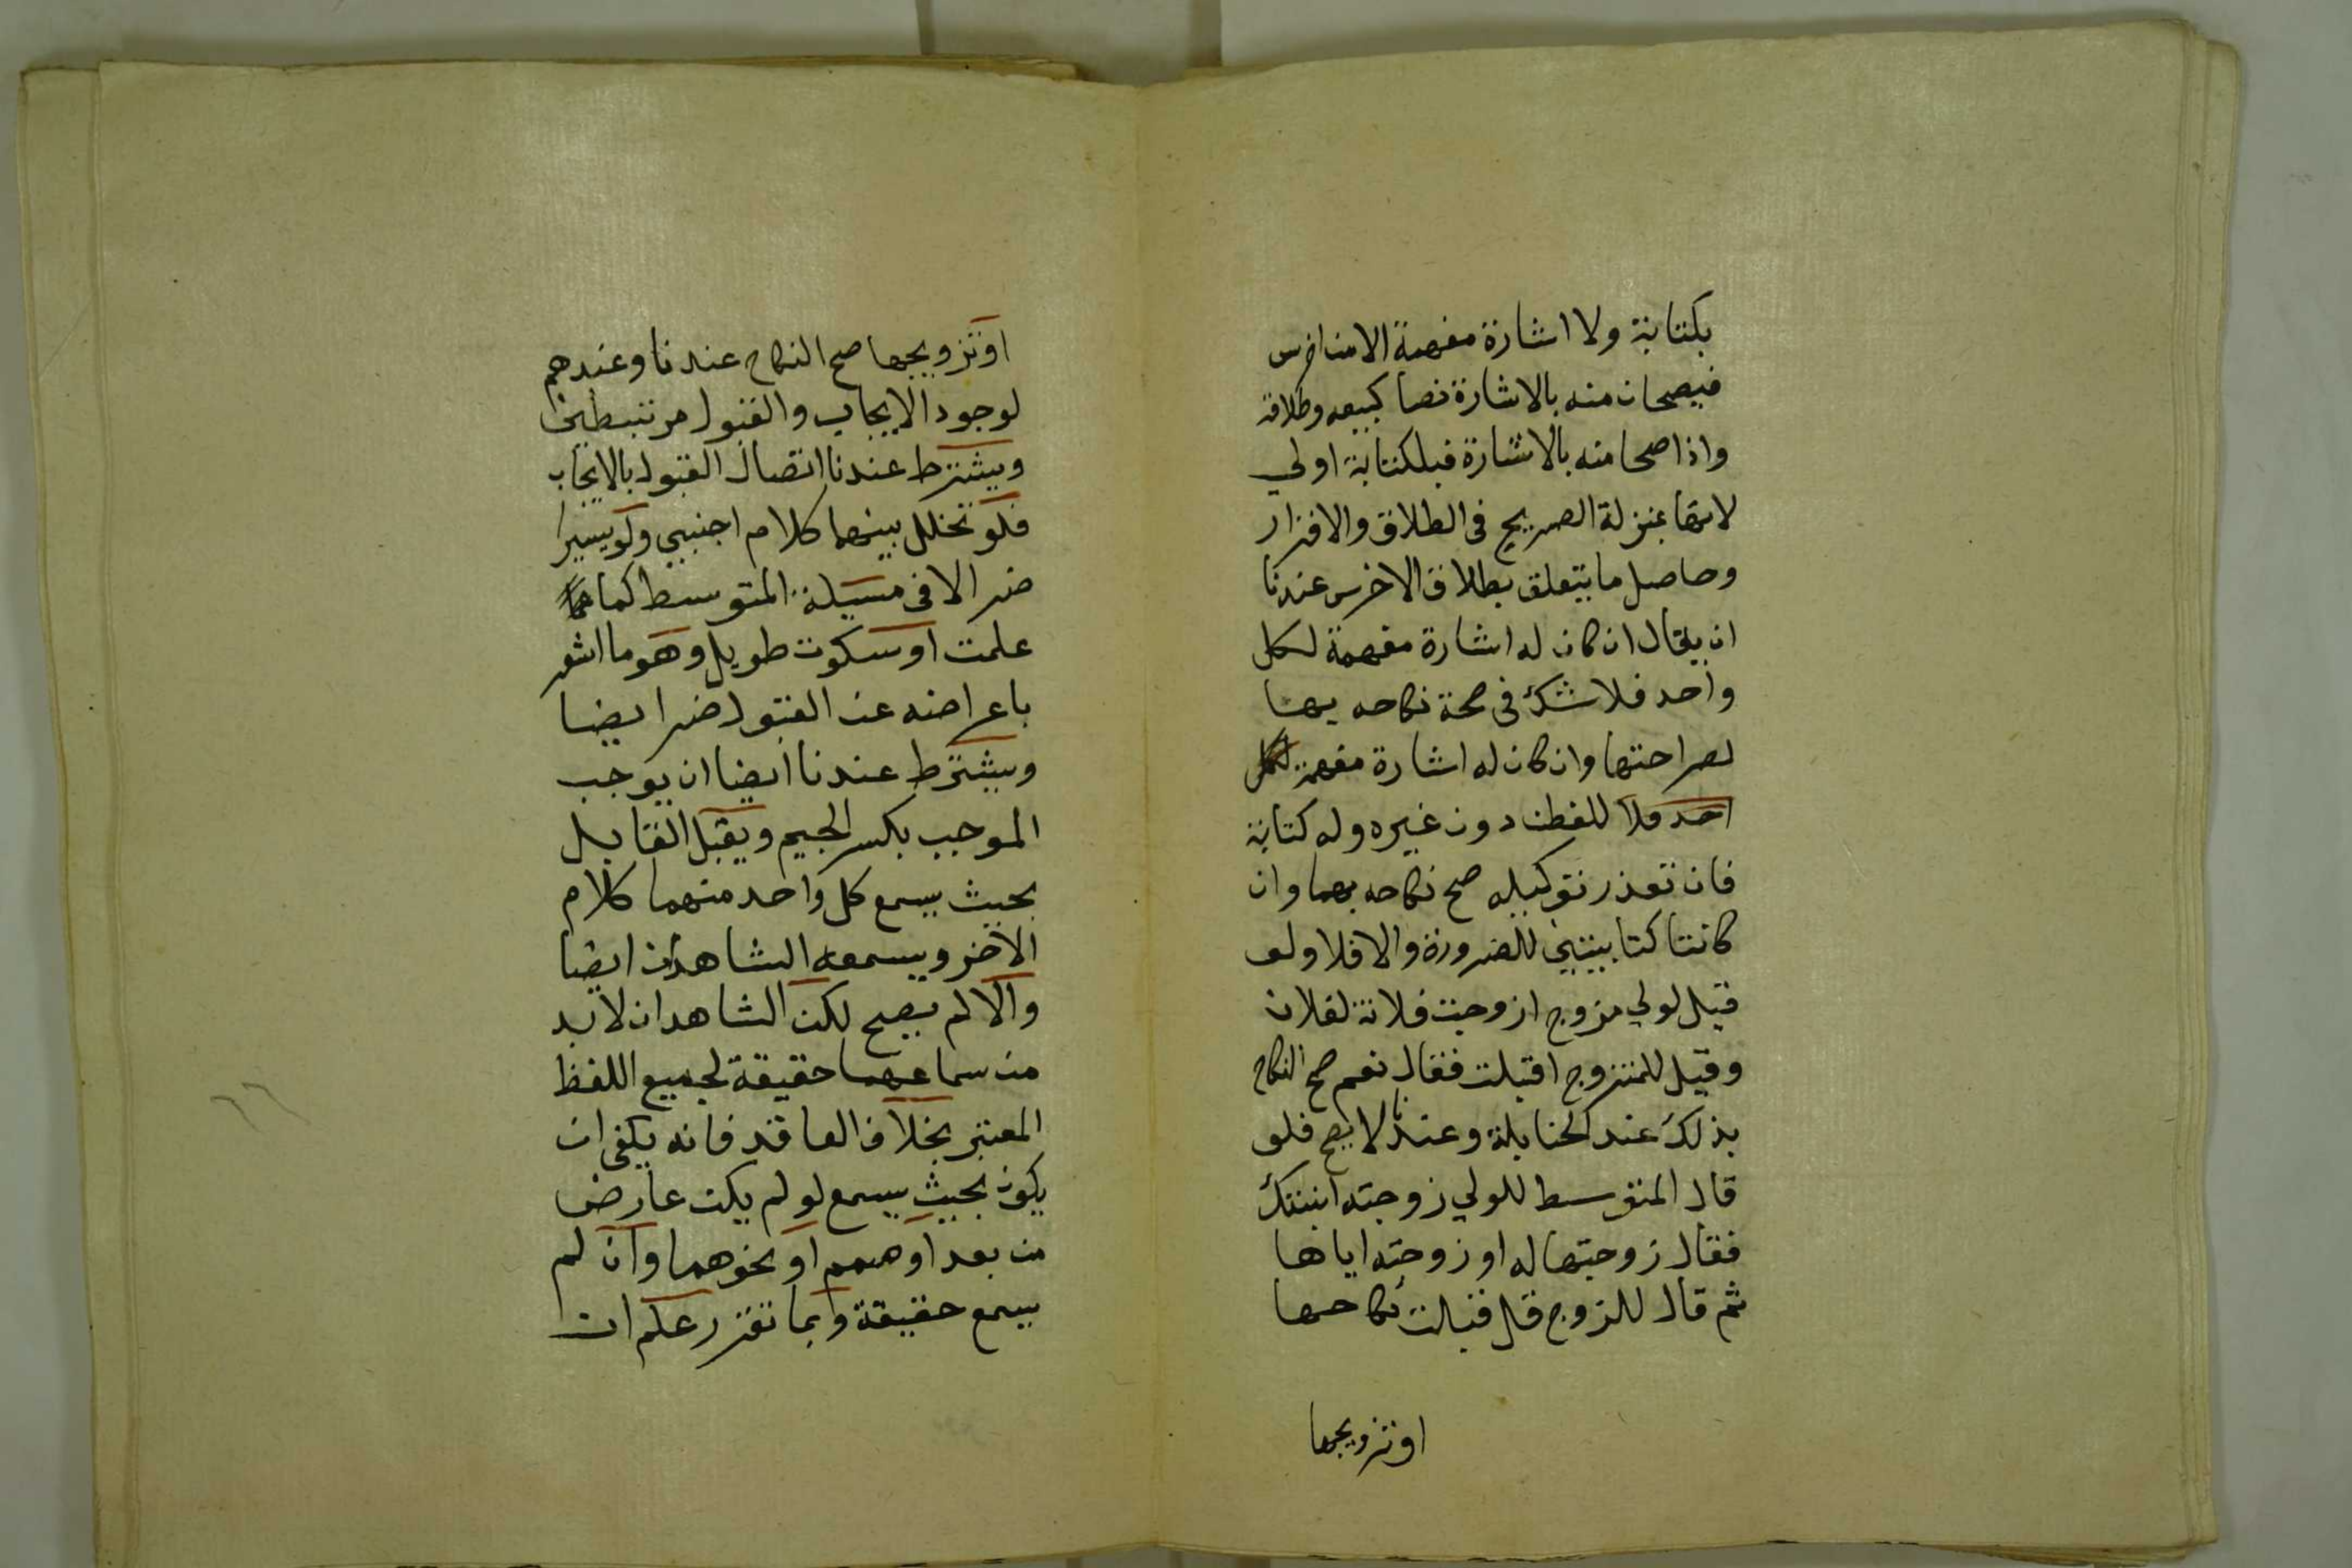 بكتابة ولا اشارة مفهمة الا من اخرس
فيصحان منه بالاشارة نصا كبيعه وطلاقه
واذا صحا منه بالاشارة فبلكتابة اولي
لانها بمنزلة الصريح في الطلاق والاقرار
وحاصل ما يتعلق بطلاق الاخرس عندنا
ان يقال ان كان له اشارة مفهمة لكل
واحد فلا شك في صحة نكاحه بها
لصراحتها وان كان له اشارة مفهمة لكل
احد فلا للفطن دون غيره وله كتابة
فان تعذر توكيله صح نكاحه بهما وان
كانتا كتابيتين للضرورة والا فلا ولو
قيل لولي مزوج ازوجت فلانة لفلان
وقيل للمتزوج اقبلت فقال نعم صح النكاح
بذلك عند الحنابلة وعندنا لا يصح فلو
قال المتوسط للولي زوجته ابنتك
فقال زوجتها له او زوجته اياها
ثم قال للزوج قل قبلت نكاحها
او تزويجها
او تزويجها صح النكاح عندنا وعندهم
لوجود الايجاب والقبول مرتبطين
ويشترط عندنا اتصال القبول بالايجاب
فلو تخلل بينهما كلام اجنبي ولو يسيرا
ضر الا في مسئلة المتوسط كما
علمت او سكوت طويل وهو ما اشعر
باعراضه عن القبول ضر ايضا
ويشترط عندنا ايضا ان يوجب
الموجب بكسر الجيم ويقبل القابل
بحيث يسمع كل واحد منهما كلام
الاخر ويسمعه الشاهدان ايضا
والا لم يصح لكن الشاهدان لا بد
من سماعهما حقيقة لجميع اللفظ
المعتبر بخلاف العاقد فانه يكفي ان
يكون بحيث يسمع لو لم يكن عارض
من بعد او صمم او نحوهما وان لم
يسمع حقيقة وبما تقرر علم ان